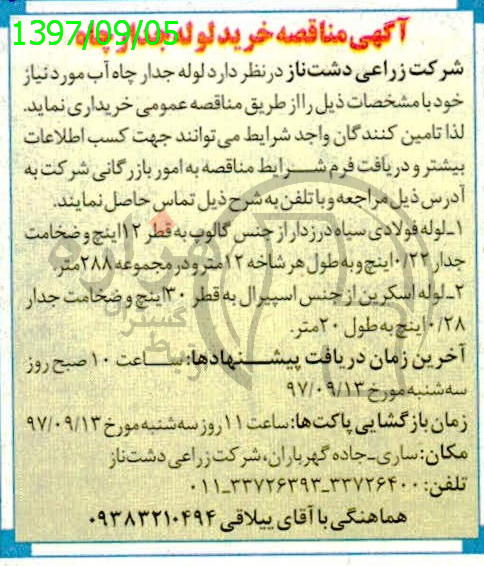 1397/09/05
آگهی مناقصه خرید لوله جدار چاه
شرکت زراعی دشت‌ناز در نظر دارد لوله جدار چاه آب مورد نیاز
خود با مشخصات ذیل را از طریق مناقصه عمومی خریداری نماید.
لذا تامین کنندگان واجد شرایط می‌توانند جهت کسب اطلاعات
بیشتر و دریافت فرم شرایط مناقصه به امور بازرگانی شرکت به
آدرس ذیل مراجعه و یا تلفن به شرح ذیل تماس حاصل نمایند.
۱ـ لوله فولادی سیاه درزدار از جنس گالوپ به قطر ۱۲اینچ و ضخامت
جدار ۰/۲۲اینچ و به طول هر شاخه ۱۲متر و در مجموعه ۲۸۸متر.
۲ـ لوله اسکرین از جنس اسپیرال به قطر ۳۰اینچ و ضخامت جدار
۰/۲۸اینچ به طول ۲۰متر.
آخرین زمان دریافت پیشنهادها: ساعت ۱۰ صبح روز
سه‌شنبه مورخ ۹۷/۰۹/۱۳
زمان بازگشایی پاکت‌ها: ساعت ۱۱ روز سه‌شنبه مورخ ۹۷/۰۹/۱۳
مکان: ساری ـ جاده گهرباران، شرکت زراعی دشت‌ناز
تلفن: ۳۳۷۲۶۴۰۰ـ۳۳۷۲۶۳۹۳ـ۰۱۱
هماهنگی با آقای ییلاقی ۰۹۳۸۳۲۱۰۴۹۴